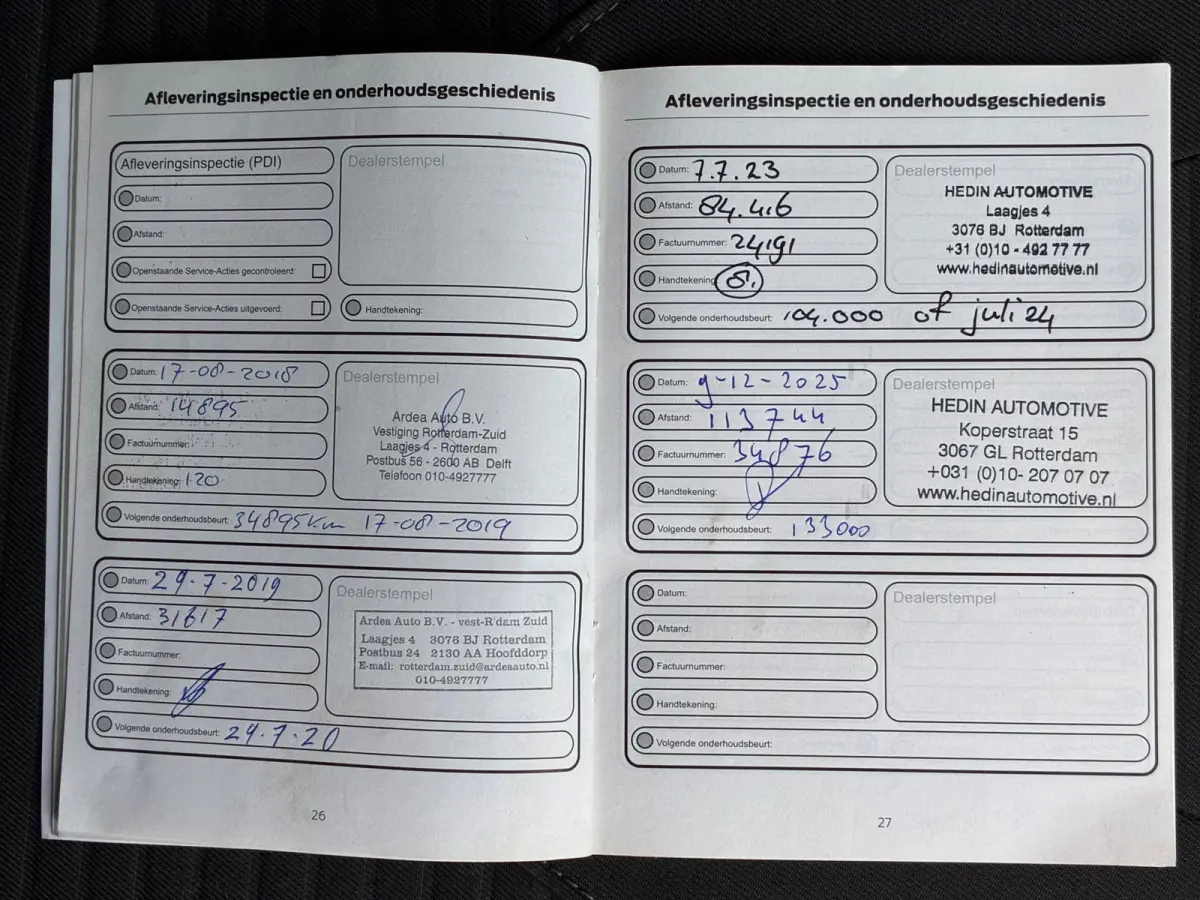 Afleveringsinspectie en onderhoudsgeschiedenis
Afleveringsinspectie (PDI)
Dealerstempel
Datum:
Afstand:
Openstaande Service-Acties gecontroleerd:
Openstaande Service-Acties uitgevoerd:
Handtekening:
Datum: 17-08-2018
Afstand: 14895
Factuurnummer:
Handtekening: 120
Volgende onderhoudsbeurt: 34895km 17-08-2019
Dealerstempel
Ardea Auto B.V.
Vestiging Rotterdam-Zuid
Laagjes 4 - Rotterdam
Postbus 56 - 2600 AB Delft
Telefoon 010-4927777
Datum: 29-7-2019
Afstand: 31617
Factuurnummer:
Handtekening:
Volgende onderhoudsbeurt: 29.7.20
Dealerstempel
Ardea Auto B.V. - vest-R'dam Zuid
Laagjes 4 3076 BJ Rotterdam
Postbus 24 2130 AA Hoofddorp
E-mail: rotterdam.zuid@ardeaauto.nl
010-4927777
26
Afleveringsinspectie en onderhoudsgeschiedenis
Datum: 7.7.23
Afstand: 84.416
Factuurnummer: 24191
Handtekening: 8.
Volgende onderhoudsbeurt: 104.000 of juli 24
Dealerstempel
HEDIN AUTOMOTIVE
Laagjes 4
3076 BJ Rotterdam
+31 (0)10 - 492 77 77
www.hedinautomotive.nl
Datum: 9-12-2025
Afstand: 113744
Factuurnummer: 34876
Handtekening:
Volgende onderhoudsbeurt: 133000
Dealerstempel
HEDIN AUTOMOTIVE
Koperstraat 15
3067 GL Rotterdam
+031 (0)10- 207 07 07
www.hedinautomotive.nl
Datum:
Afstand:
Factuurnummer:
Handtekening:
Volgende onderhoudsbeurt:
Dealerstempel
27